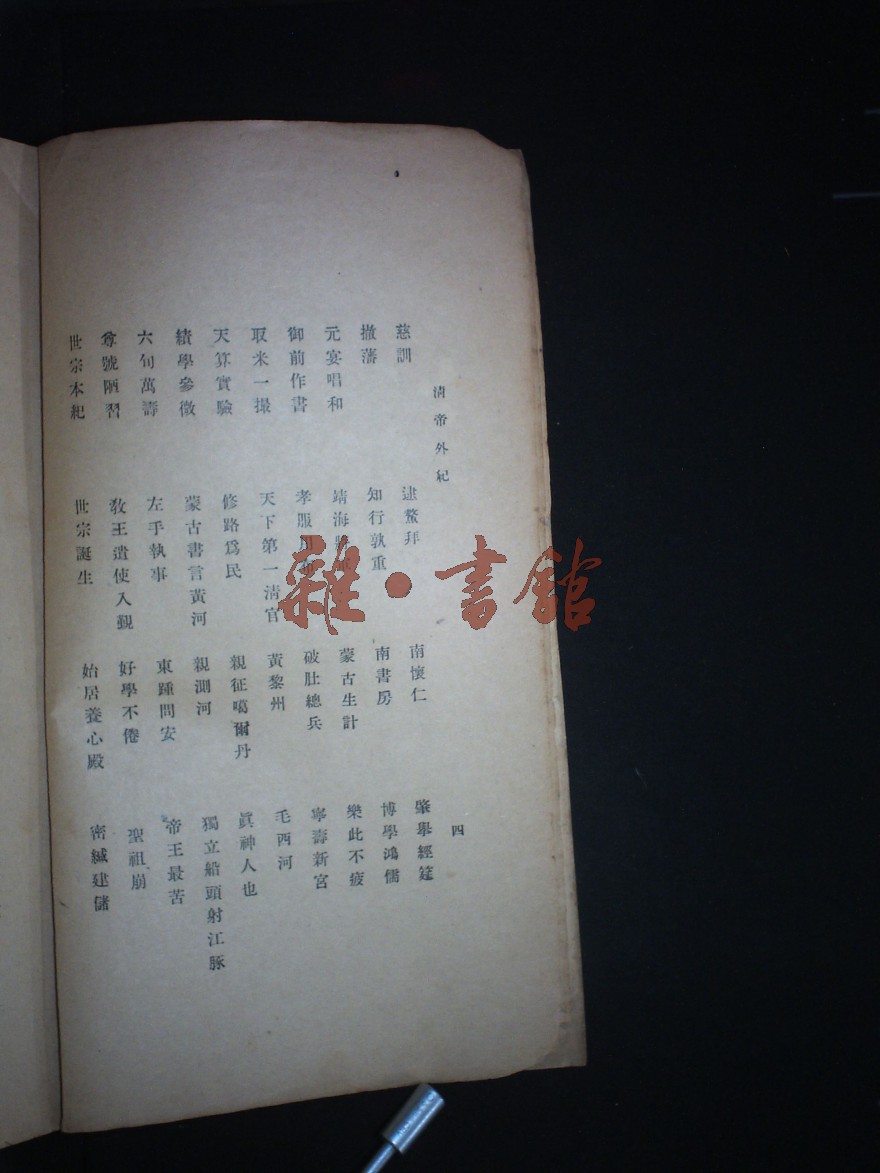 清帝外紀 四
慈訓 逮鰲拜 南懷仁 肇舉經筵
撤藩 知行孰重 南書房 博學鴻儒
元宴唱和 靖海 蒙古生計 樂此不疲
御前作書 孝服 破肚總兵 寧壽新宮
取米一撮 天下第一淸官 黃黎州 毛西河
天算實驗 修路爲民 親征噶爾丹 眞神人也
績學參微 蒙古書言黃河 親測河 獨立船頭射江豚
六旬萬壽 左手執事 東踵問安 帝王最苦
尊號陋習 敎王遣使入覲 好學不倦 聖祖崩
世宗本紀 世宗誕生 始居養心殿 密緘建儲
雜·書館